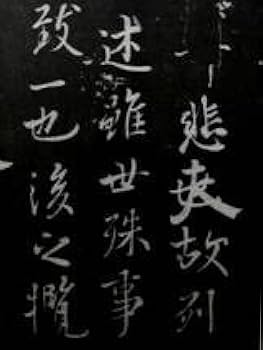 悲夫故列
述雖世殊事
致一也後之攬